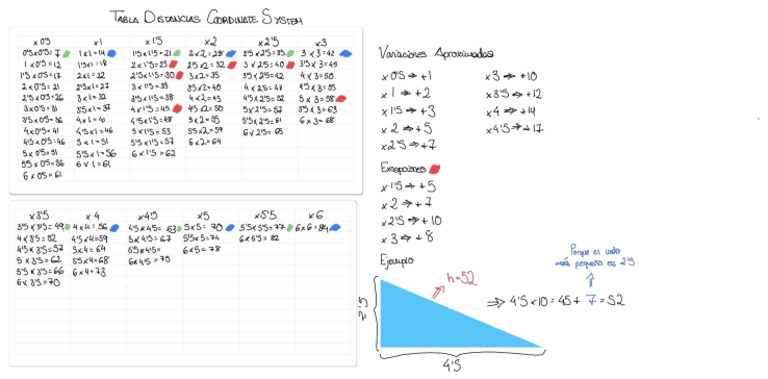 TABLA DISTANCIAS COORDINATE SYSTEM
x 0'5
0'5 x 0'5 = 7
1 x 0'5 = 12
1'5 x 0'5 = 17
2 x 0'5 = 21
2'5 x 0'5 = 26
3 x 0'5 = 31
3'5 x 0'5 = 36
4 x 0'5 = 41
4'5 x 0'5 = 46
5 x 0'5 = 51
5'5 x 0'5 = 56
6 x 0'5 = 61
x 1
1 x 1 = 14
1'5 x 1 = 18
2 x 1 = 22
2'5 x 1 = 27
3 x 1 = 32
3'5 x 1 = 37
4 x 1 = 41
4'5 x 1 = 46
5 x 1 = 51
5'5 x 1 = 56
6 x 1 = 61
x 1'5
1'5 x 1'5 = 21
2 x 1'5 = 25
2'5 x 1'5 = 30
3 x 1'5 = 35
3'5 x 1'5 = 38
4 x 1'5 = 45
4'5 x 1'5 = 48
5 x 1'5 = 53
5'5 x 1'5 = 57
6 x 1'5 = 62
x 2
2 x 2 = 28
2'5 x 2 = 32
3 x 2 = 35
3'5 x 2 = 40
4 x 2 = 45
4'5 x 2 = 50
5 x 2 = 55
5'5 x 2 = 59
6 x 2 = 64
x 2'5
2'5 x 2'5 = 35
3 x 2'5 = 40
3'5 x 2'5 = 42
4 x 2'5 = 47
4'5 x 2'5 = 52
5 x 2'5 = 57
5'5 x 2'5 = 61
6 x 2'5 = 65
x 3
3 x 3 = 42
3'5 x 3 = 45
4 x 3 = 50
4'5 x 3 = 55
5 x 3 = 58
5'5 x 3 = 63
6 x 3 = 68
x 3'5
3'5 x 3'5 = 49
4 x 3'5 = 52
4'5 x 3'5 = 57
5 x 3'5 = 62
5'5 x 3'5 = 66
6 x 3'5 = 70
x 4
4 x 4 = 56
4'5 x 4 = 59
5 x 4 = 64
5'5 x 4 = 68
6 x 4 = 73
x 4'5
4'5 x 4'5 = 63
5 x 4'5 = 67
5'5 x 4'5 =
6 x 4'5 = 75
x 5
5 x 5 = 70
5'5 x 5 = 74
6 x 5 = 78
x 5'5
5'5 x 5'5 = 77
6 x 5'5 = 82
x 6
6 x 6 = 84
Variaciones Aproximadas
x 0'5 ⇒ +1
x 1 ⇒ +2
x 1'5 ⇒ +3
x 2 ⇒ +5
x 2'5 ⇒ +7
x 3 ⇒ +10
x 3'5 ⇒ +12
x 4 ⇒ +14
x 4'5 ⇒ +17
Excepciones
x 1'5 ⇒ +5
x 2 ⇒ +7
x 2'5 ⇒ +10
x 3 ⇒ +8
Ejemplo
h=52
2'5
4'5
Porque el lado
más pequeño es 2'5
⇒ 4'5 x 10 = 45 + 7 = 52